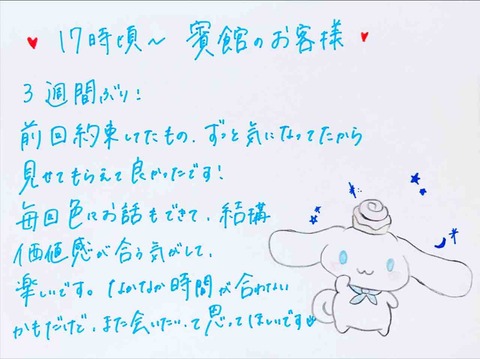 17時頃～ 賓館のお客様
3週間ぶり!
前回約束してたもの、ずっと気になってたから
見せてもらえて良かったです!
毎回色にお話もできて、結構
価値感が合う気がして、
楽しいです。なかなか時間が合わない
かもだけど、また会いたいって思ってほしいです